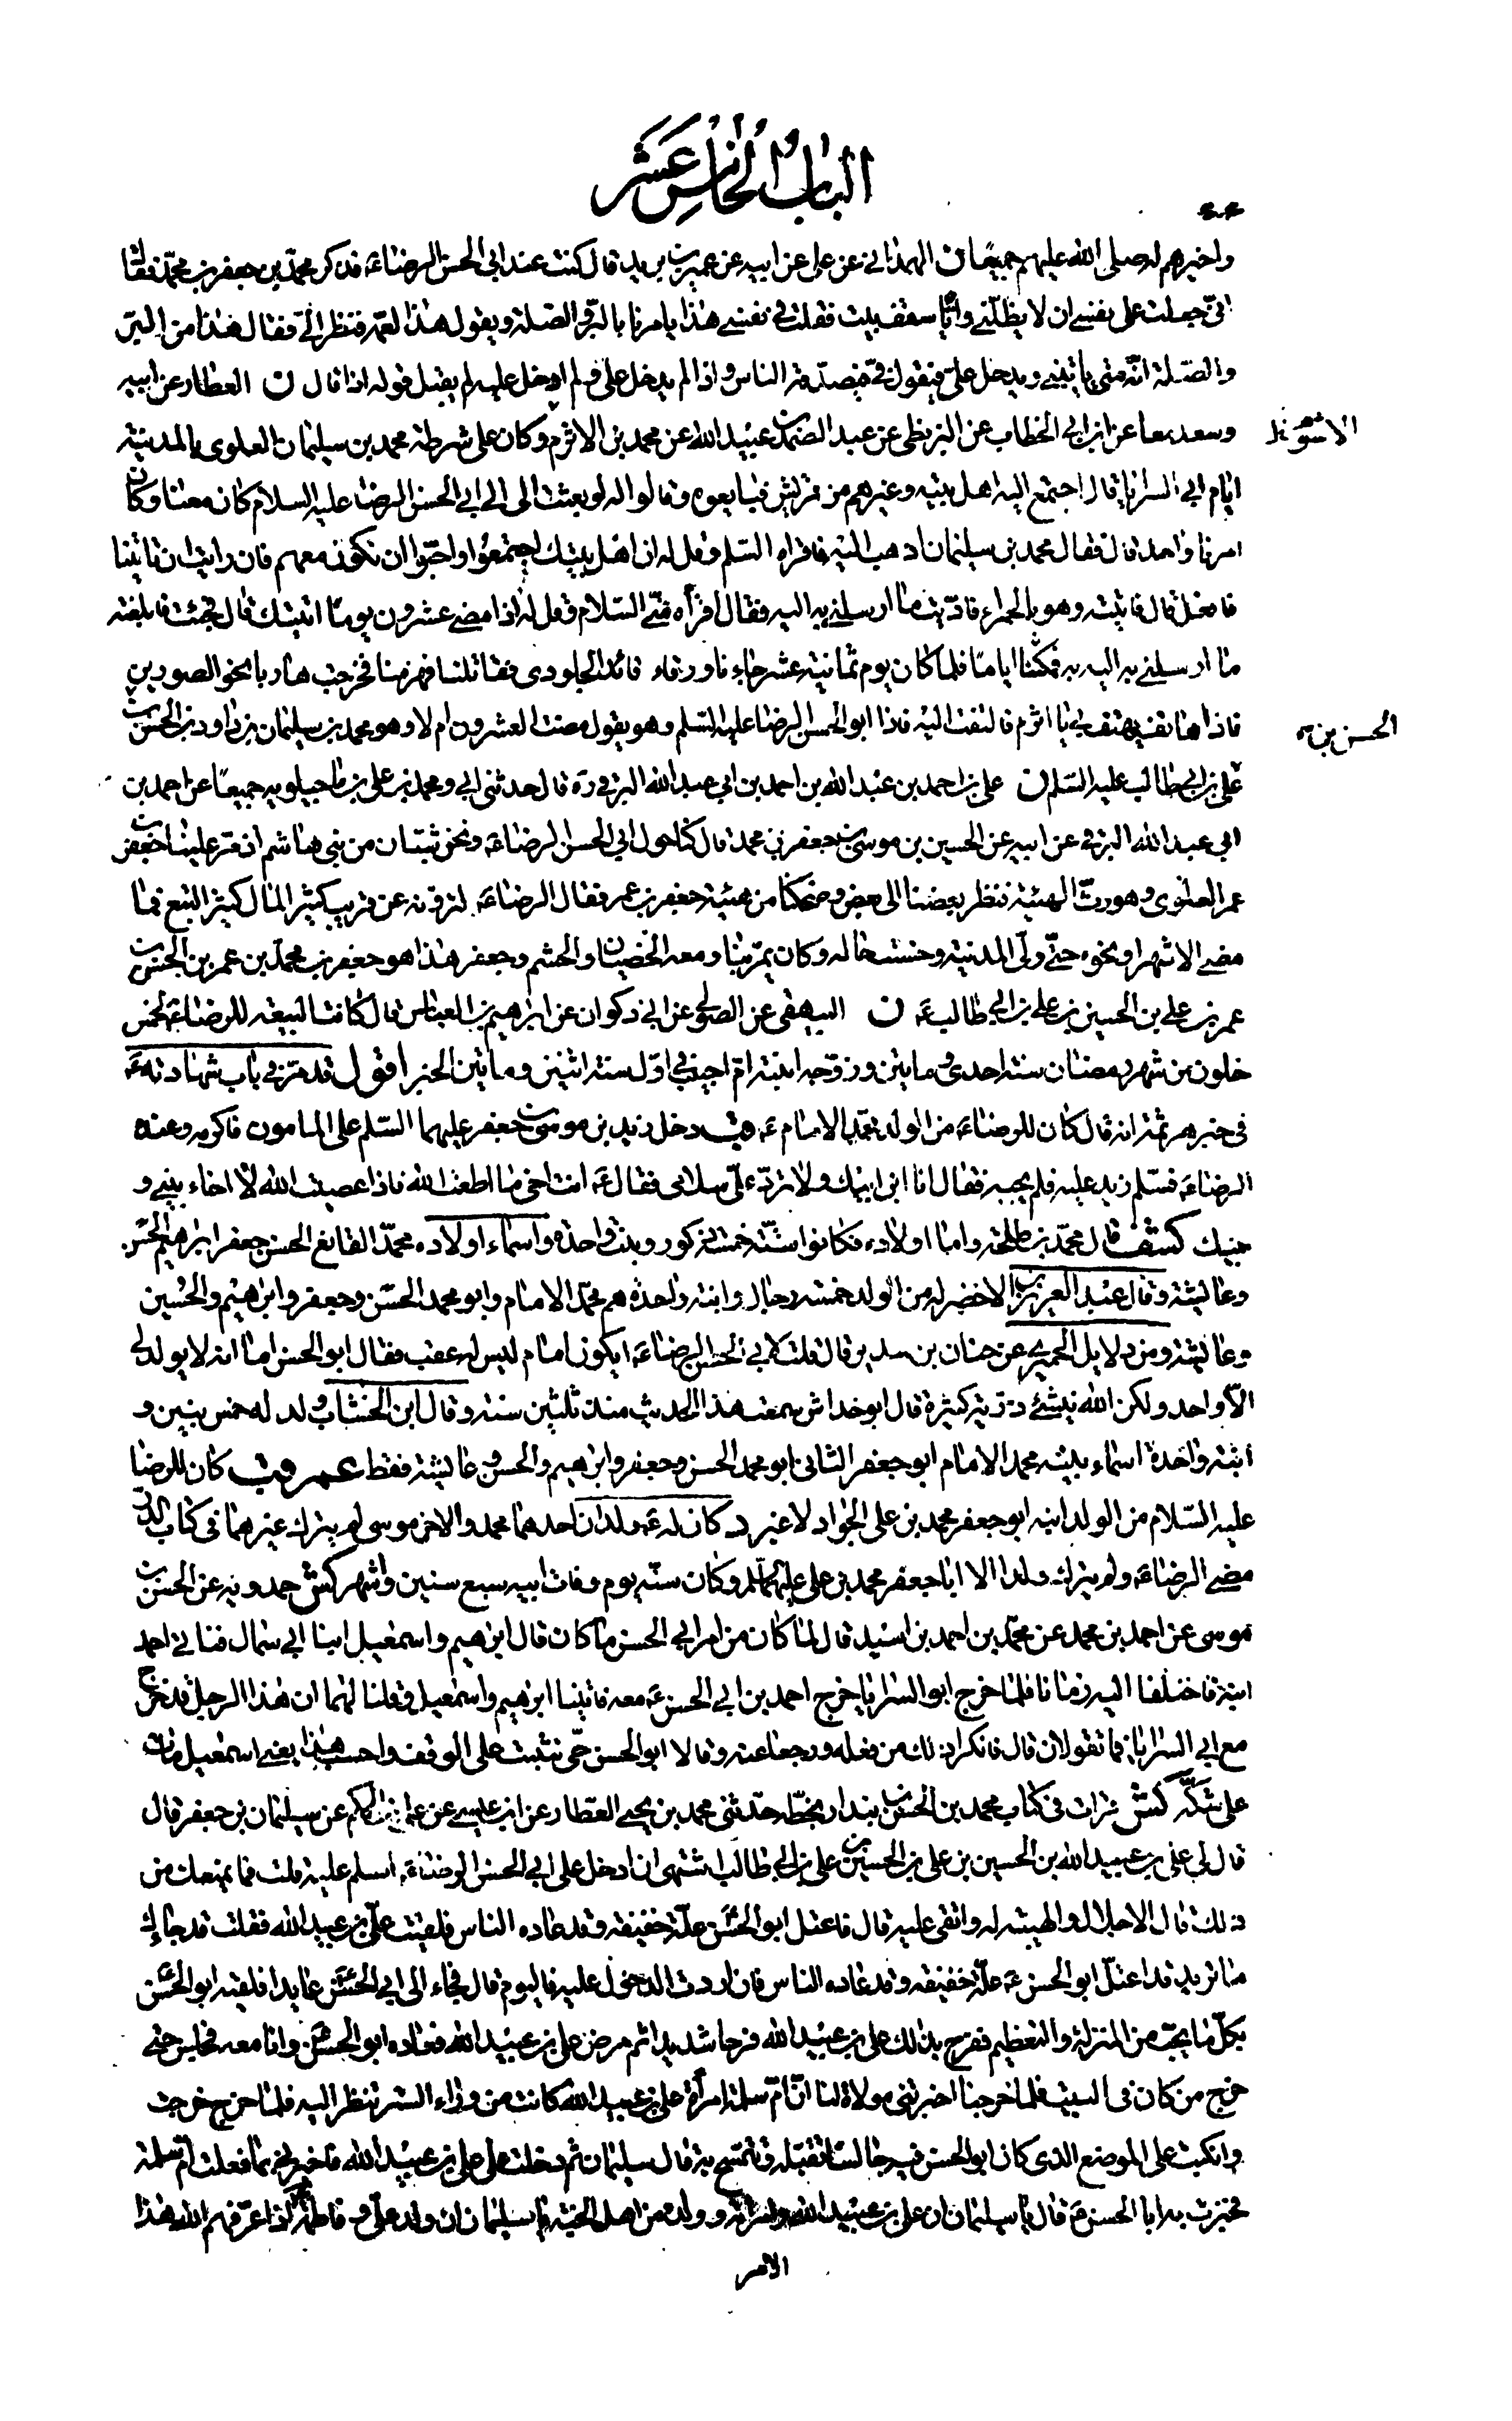 الباب الخامس عشر
٦٦
واخبرهم له صلى الله عليهم جميعا ن الهمداني عن علي عن ابيه عن عمير بن يزيد قال كنت عند ابي الحسن الرضا ع فذكر محمد بن جعفر بن محمد فقال
اني جعلت على نفسي ان لا يظلني واياه سقف بيت فقلت في نفسي هذا يامرنا بالبر والصلة ويقول هذا لعمه فنظر الي فقال هذا من البر
والصلة انه متى ياتيني ويدخل علي فيقول في فيصدقه الناس واذا لم يدخل علي ولم ادخل عليه لم يقبل قوله اذا قال ن العطار عن ابيه
وسعد معا عن ابن ابي الخطاب عن البزنطي عن عبد الصمد بن عبيد الله عن محمد بن الاثرم وكان على شرطة محمد بن سليمان العلوي بالمدينة
ايام ابي السرايا قال اجتمع اليه اهل بيته وغيرهم من قريش فبايعوه وقالوا له لو بعثت الى ابي الحسن الرضا عليه السلام كان معنا وكان
امرنا واحد قال فقال محمد بن سليمان اذهب اليه فاقراه السلم وقل له ان اهل بيتك اجتمعوا واحبوا ان تكون معهم فان رايت ان تاتينا
فافعل قال فاتيته وهو بالحمراء فاديت ما ارسلني به اليه فقال اقرأه مني السلام وقل له اذا مضى عشرون يوما اتيتك قال فجئت فابلغته
ما ارسلني به اليه فمكثنا اياما فلما كان يوم ثمانية عشر جاءنا ورقاء قائد الجلودي فقاتلنا فهزمنا فخرجت هاربا نحو الصورين
فاذا هاتف يهتف بي يا اثرم فالتفت اليه فاذا ابو الحسن الرضا عليه السلم وهو يقول مضت العشرون ام لا وهو محمد بن سليمان بن داود بن الحسن بن
علي بن ابي طالب عليه السلم ن علي بن احمد بن عبد الله بن احمد بن ابي عبد الله البرقي ره قال حدثني ابي ومحمد بن علي بن ماجيلويه جميعا عن احمد بن
ابي عبد الله البرقي عن ابيه عن الحسين بن موسى بن جعفر بن محمد قال كنا حول ابي الحسن الرضا ع ونحن شبان من بني هاشم اذ مر علينا جعفر بن
عمر العلوي وهو رث الهيئة فنظر بعضنا الى بعض وضحكنا من هيئة جعفر بن عمر فقال الرضا ع لترونه عن قريب كثير المال كثير التبع فما
مضى الا شهر او نحوه حتى ولي المدينة وحسنت حاله وكان يمر بنا ومعه الخصيان والحشم وجعفر هذا هو جعفر بن محمد بن عمر بن الحسن بن
عمر بن علي بن الحسين بن علي بن ابي طالب ع ن البيهقي عن الصولي عن ابي ذكوان عن ابرهيم بن العباس قال كانت البيعة للرضا ع لخمس
خلون من شهر رمضان سنة احدى وماتين وزوجه ابنته ام حبيب في اول سنة اثنين وماتين الخبر اقول قد مر في باب شهادته ع
في خبر هرثمة انه قال كان للرضا ع من الولد محمد الامام ع قب دخل زيد بن موسى بن جعفر عليهما السلم على المامون فاكرمه وعنده
الرضا ع فسلم زيد عليه فلم يجبه فقال انا ابن ابيك ولا ترد علي سلامي فقال ع انت اخي ما اطعت الله فاذا عصيت الله لا اخاء بيني و
بينك كشف قال محمد بن طلحة واما اولاده فكانوا ستة خمسة ذكور وبنت واحدة واسماء اولاده محمد القانع الحسن جعفر ابرهيم الحسين
وعائشة وقال عبد العزيز بن الاخضر له من الولد خمسة رجال وابنة واحدة هم محمد الامام وابو محمد الحسن وجعفر وابرهيم والحسين
وعائشة ومن دلايل الحميري عن حنان بن سدير قال قلت لابي الحسن الرضا ع ايكون امام ليس له عقب فقال ابو الحسن اما انه لا يولد لي
الا واحد ولكن الله ينشئ ذرية كثيرة قال ابو خداش سمعت هذا الحديث منذ ثلثين سنة وقال ابن الخشاب ولد له خمس بنين و
ابنة واحدة اسماء بنيه محمد الامام ابو جعفر الثاني ابو محمد الحسن وجعفر وابرهيم والحسن وعائشة فقط عمر وقب كان للرضا
عليه السلام من الولد ابنه ابو جعفر محمد بن علي الجواد لا غير د كان له ع ولدان احدهما محمد والاخر موسى لم يترك غيرهما في كتاب الدر
مضى الرضا ع ولم يترك ولدا الا ابا جعفر محمد بن علي عليهما السلم وكان سنه يوم وفات ابيه سبع سنين واشهر كش حمدويه عن الحسن بن
موسى عن احمد بن محمد عن محمد بن احمد بن اسيد قال لما كان من امر ابي الحسن ما كان قال ابرهيم واسمعيل ابنا ابي سمال فناتي احمد
ابنه فاختلفا اليه زمانا فلما خرج ابو السرايا خرج احمد بن ابي الحسن ع معه فاتينا ابرهيم واسمعيل وقلنا لهما ان هذا الرجل قد خرج
مع ابي السرايا فما تقولان قال فانكرا ذلك من فعله ورجعا عنه وقالا ابو الحسن حي نثبت على الوقف واحسب هذا يعني اسمعيل مات
على شكه كش قرات في كتاب محمد بن الحسن بن بندار بخطه حدثني محمد بن يحيى العطار عن ابن عيسى عن علي بن الحكم عن سليمان بن جعفر قال
قال لي علي بن عبيد الله بن الحسين بن علي بن الحسين بن علي بن ابي طالب اشتهي ان ادخل على ابي الحسن الرضا ع اسلم عليه قلت فما يمنعك من
ذلك قال الاجلال والهيبة له واتقي عليه قال فاعتل ابو الحسن علة خفيفة وقد عاده الناس فلقيت علي بن عبيد الله فقلت قد جاءك
ما تريد قد اعتل ابو الحسن ع علة خفيفة وقد عاده الناس فان اردت الدخول عليه فاليوم قال فجاء الى ابي الحسن عايدا فلقيه ابو الحسن
بكل ما يحب من المنزلة والتعظيم ففرح بذلك علي بن عبيد الله فرحا شديدا ثم مرض علي بن عبيد الله فعاده ابو الحسن وانا معه فجلس حتى
خرج من كان في البيت فلما خرجنا اخبرتني مولاة لنا ان ام سلمة امرأة علي بن عبيد الله كانت من وراء الستر تنظر اليه فلما خرج خرجت
وانكبت على الموضع الذي كان ابو الحسن فيه جالسا تقبله وتتمسح به قال سليمان ثم دخلت على علي بن عبيد الله فاخبرني بما فعلت ام سلمة
فخبرت به ابا الحسن ع قال يا سليمان ان علي بن عبيد الله وامراته وولده من اهل الجنة يا سليمان ان ولد علي وفاطمة اذا عرفهم الله هذا
الامر
الحسن بن